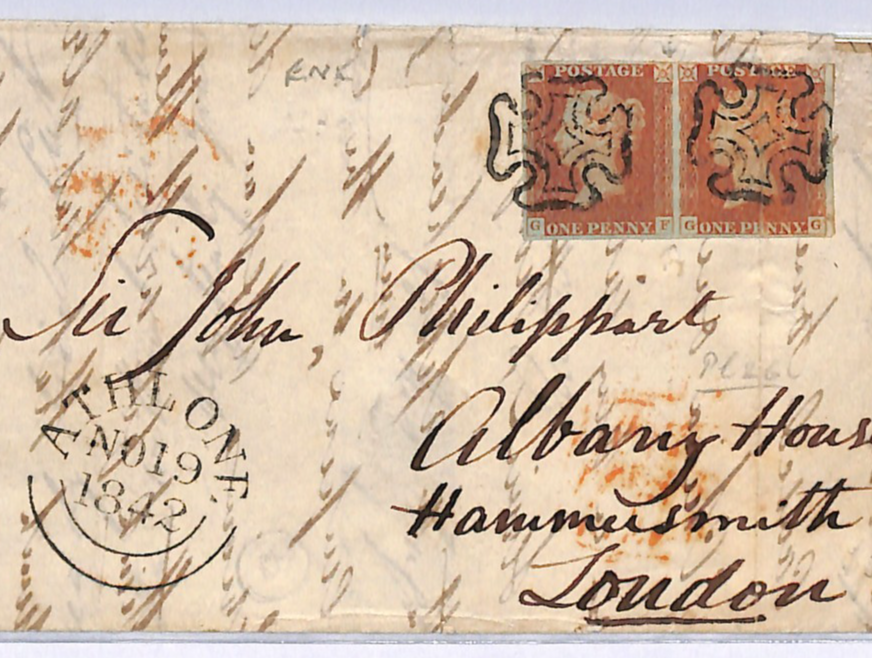 POSTAGE POSTAGE
G ONE PENNY F G ONE PENNY G
Sir John Philippart
Albany House
Hammersmith
London
ATHLONE
NO19
1842